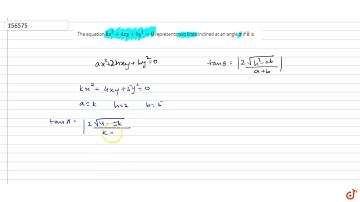 156575
The equation kx² + 4xy + 5y² = 0 represents two lines inclined at an angle π if k is
ax²+2hxy+by²=0 tanθ = | 2√h²-ab / a+b |
kx² + 4xy+5y²=0
a=k h=2 b=5
tanπ = | 2√4-5k / k +